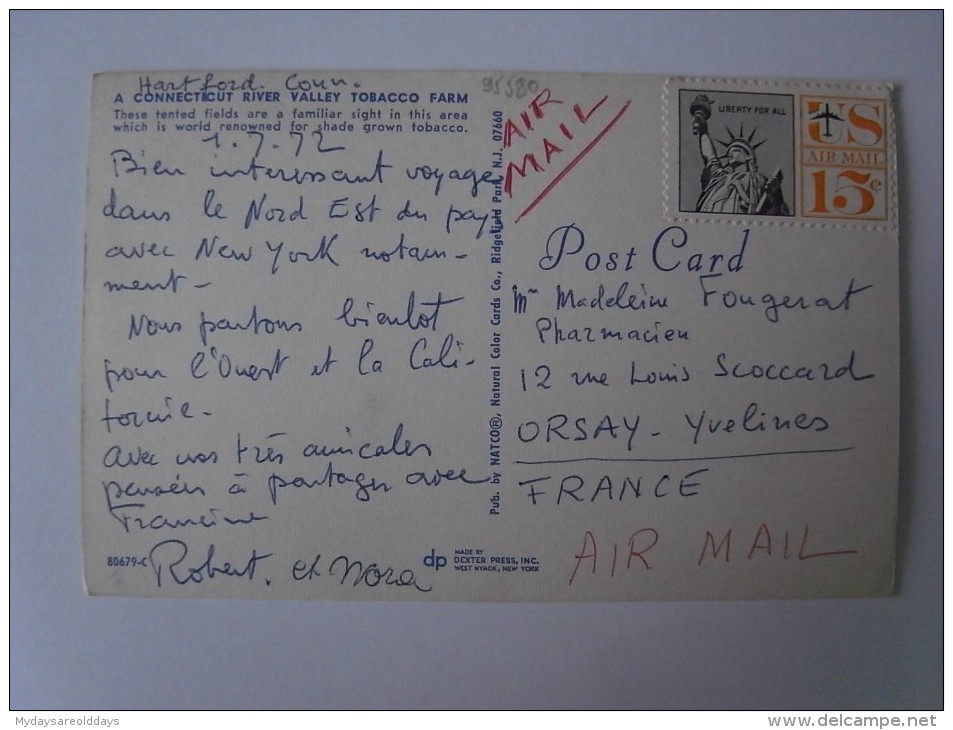 Hartford. Conn.
A CONNECTICUT RIVER VALLEY TOBACCO FARM
These tented fields are a familiar sight in this area
which is world renowned for shade grown tobacco.
1.7.72
Bien interessant voyage
dans le Nord Est du pays
avec New York notam-
ment-
Nous partons bientot
pour l'Ouest et la Cali-
fornie-
avec nos très amicales
pensées à partager avec
Francine
Robert. et Nora
80679-C
dp
MADE BY
DEXTER PRESS, INC.
WEST NYACK, NEW YORK
Pub. by NATCO®, Natural Color Cards Co., Ridgefield Park, N.J. 07660
95580
AIR
MAIL
LIBERTY FOR ALL
US
AIR MAIL
15¢
Post Card
Mme Madeleine Fougerat
Pharmacien
12 rue Louis Scoccard
ORSAY - Yvelines
FRANCE
AIR MAIL
Mydaysareolddays
www.delcampe.net